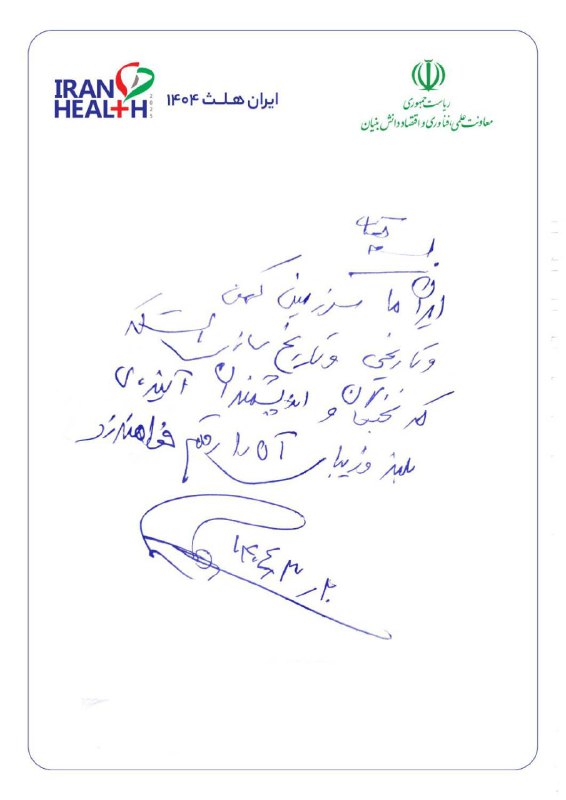 IRAN
HEALTH
2025
ایران هلث ۱۴۰۴
ریاست جمهوری
معاونت علمی، فناوری و اقتصاد دانش بنیان
ایران ما سرزمین کهن
و تاریخی و تاریخ ساز است که
نخبگان و اندیشمندان آینده‌ی
بلند و زیبای آن را رقم خواهند زد
۱۴۰۴/۳/۲۰